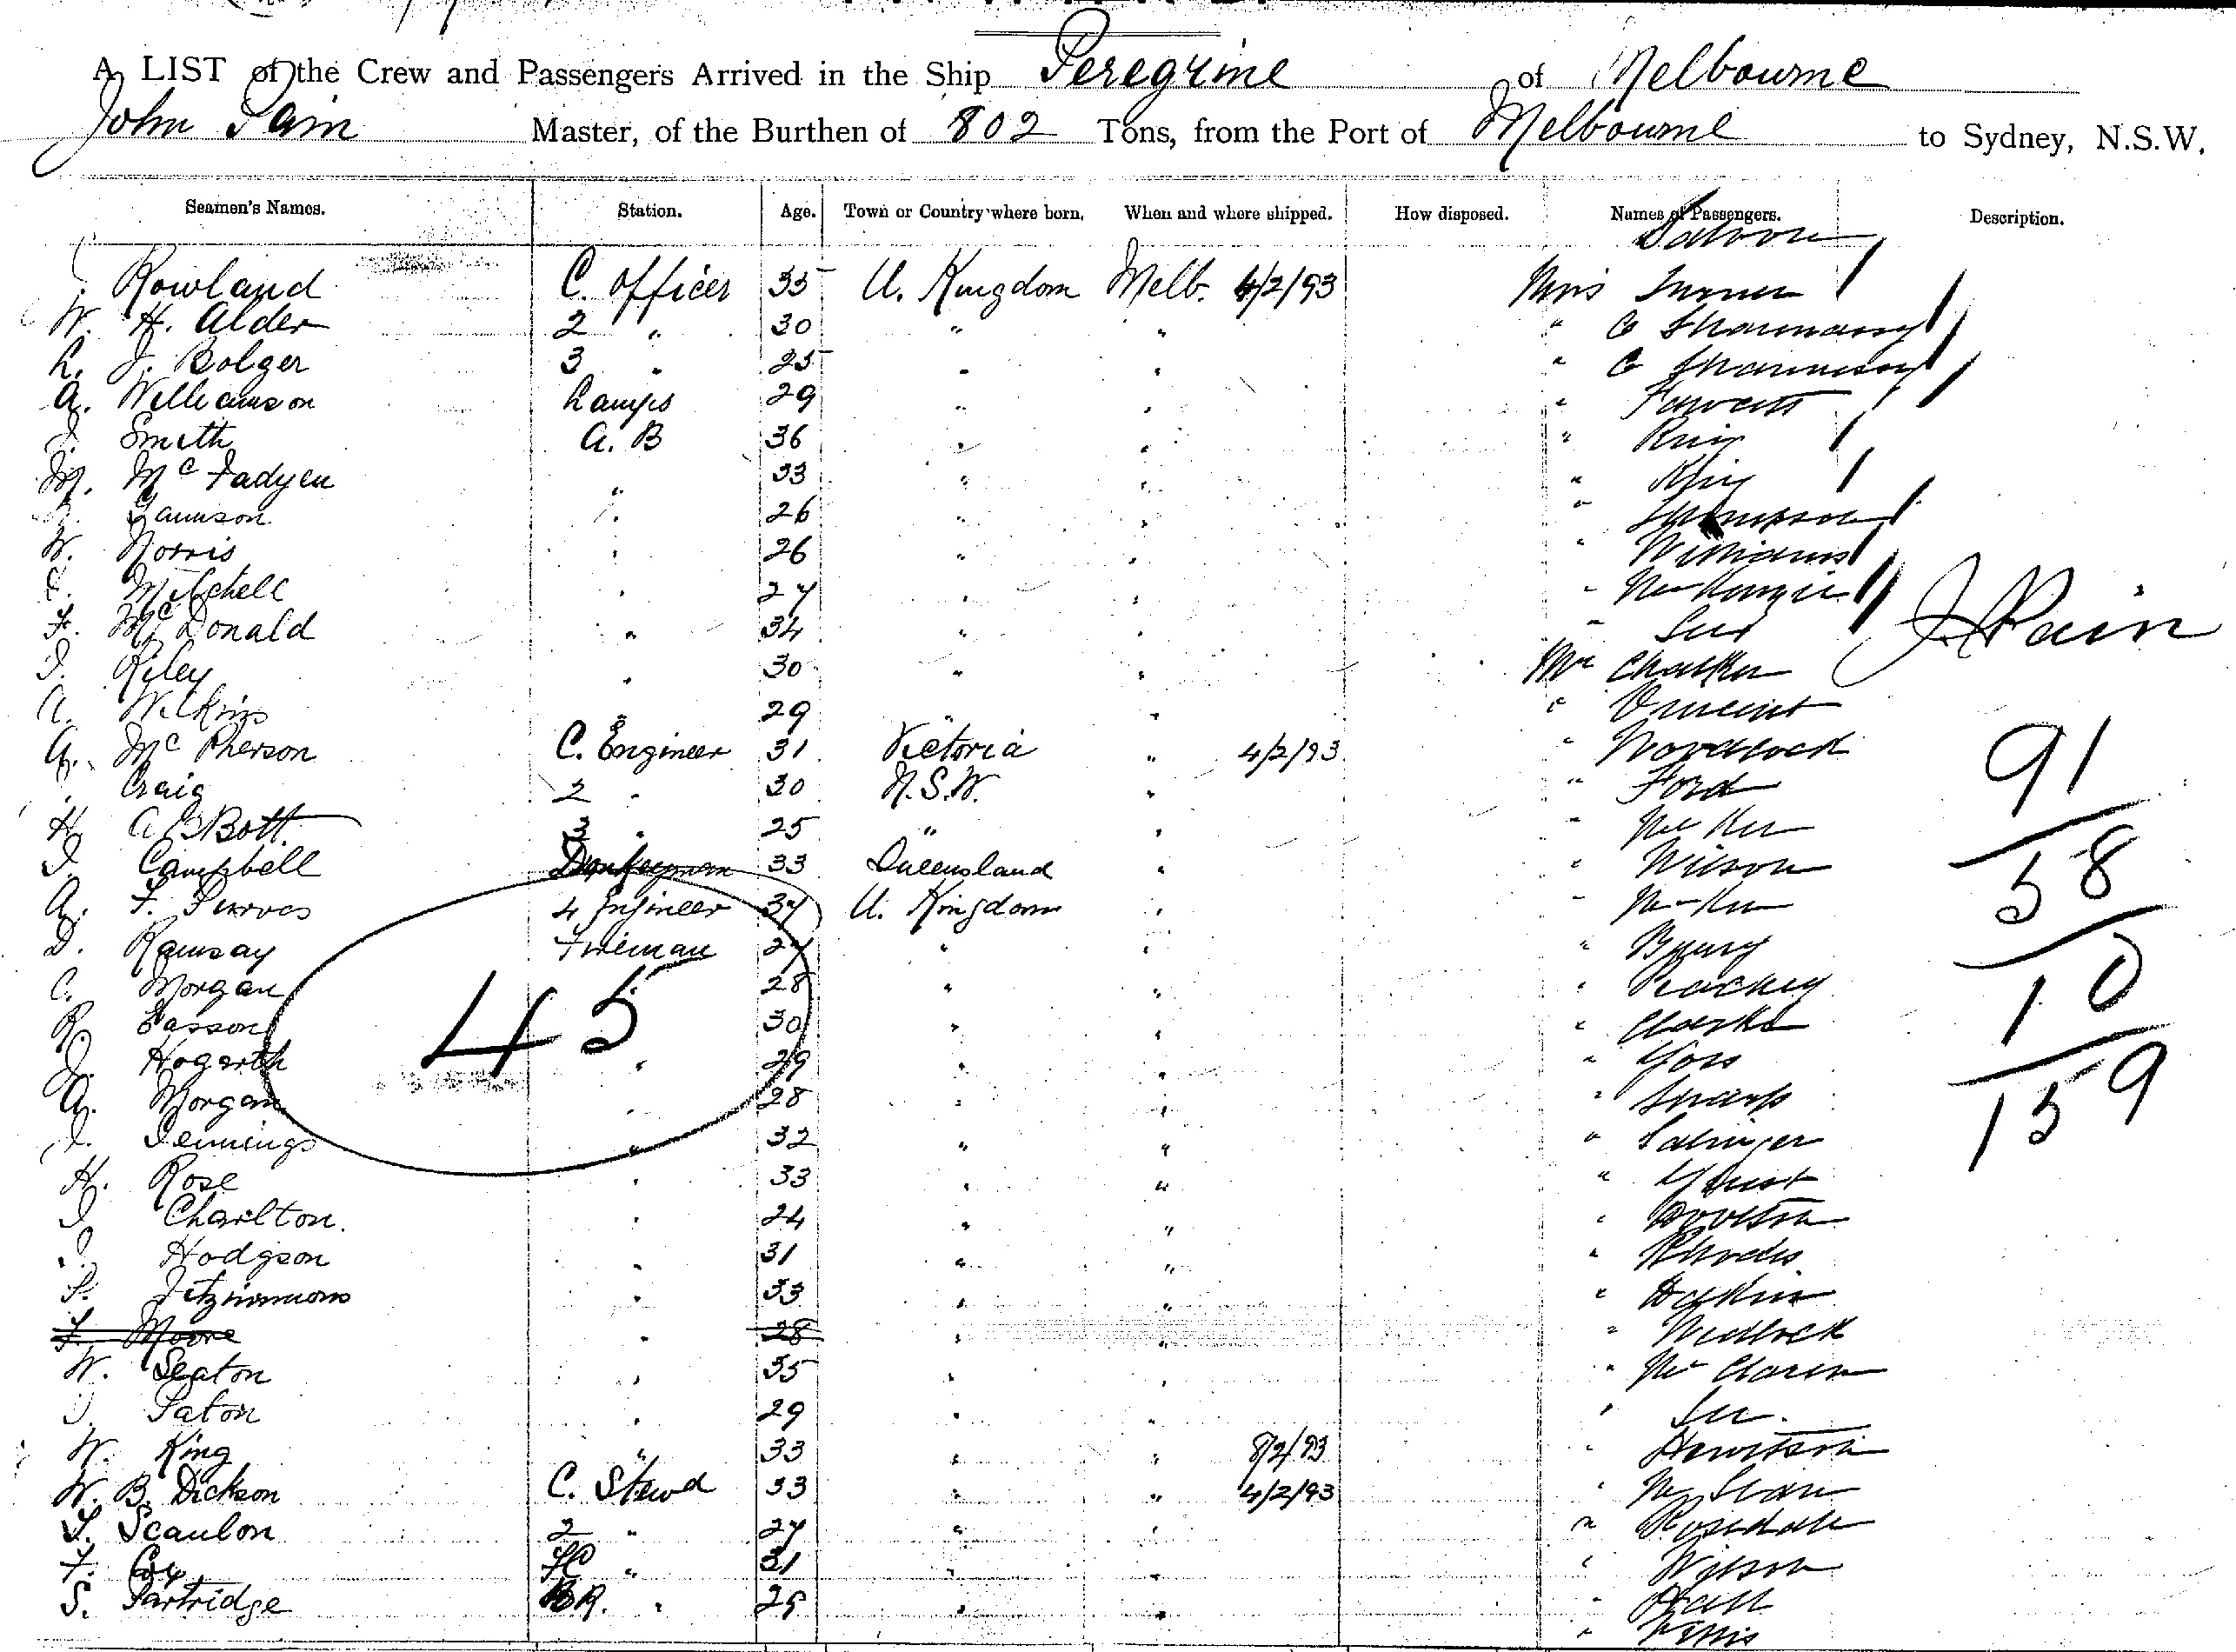 A LIST of the Crew and Passengers Arrived in the Ship Peregrine of Melbourne
John Pain Master, of the Burthen of 802 Tons, from the Port of Melbourne to Sydney, N.S.W.
Seamen's Names. Station. Age. Town or Country where born. When and where shipped. How disposed. Names of Passengers. Description.
Saloon
Rowland C. Officer 35 U. Kingdom Melb. 4/2/93 Turner
W. H. Alder 2 " 30 " "
L. J. Bolger 3 " 25 " "
A. Williamson Lamps 29 " " " Fawcett
J. Smith A. B 36 " " " King
M. Mc Fadyen " 33 " " " King
Jamson " 26 " " " Thompson
W. Norris " 26 " " " Williams
Mitchell " 27 " " " McKenzie
F. McDonald " 34 " "
J. Pain
J. Riley " 30 " " Mr Chalker
A. Wilkins " 29 " " " Vincent
A. Mc Pherson C. Engineer 31 Victoria " 4/2/93 " Woodcock
Craig 2 " 30 N.S.W. " " Ford
91
H. ABBott. 3 " 25 " "
J. Campbell Donkeyman 33 Queensland " " Wilson
58
A. F. Purves 4 Engineer 37 U. Kingdom "
D. Ramsay Fireman 27 " "
C. Morgan 28 " " " Peachey
10
R. Easson 30 " " " Clarke
45
J. Hogarth " 29 " " " Goss
A. Morgan " 28 " " " Sharp
159
J. Jennings " 32 " " " Salinger
H. Rose " 33 " "
J. Charlton. " 24 " "
J. Hodgson " 31 " " " Rhodes
S. Fitzsimmons " 33 " "
F. Moore " 28 " " " Wedlock
W. Seaton " 35 " " " McClaren
J. Paton " 29 " "
W. King " 33 " " 8/2/93 " Hewitson
W. B. Dickson C. Stewd 33 " " 4/2/93
T. Scanlon 2 " 27 " " " Rosedale
F. Cox " 31 " " " Wilson
S. Partridge BR. " 25 " " " Hall